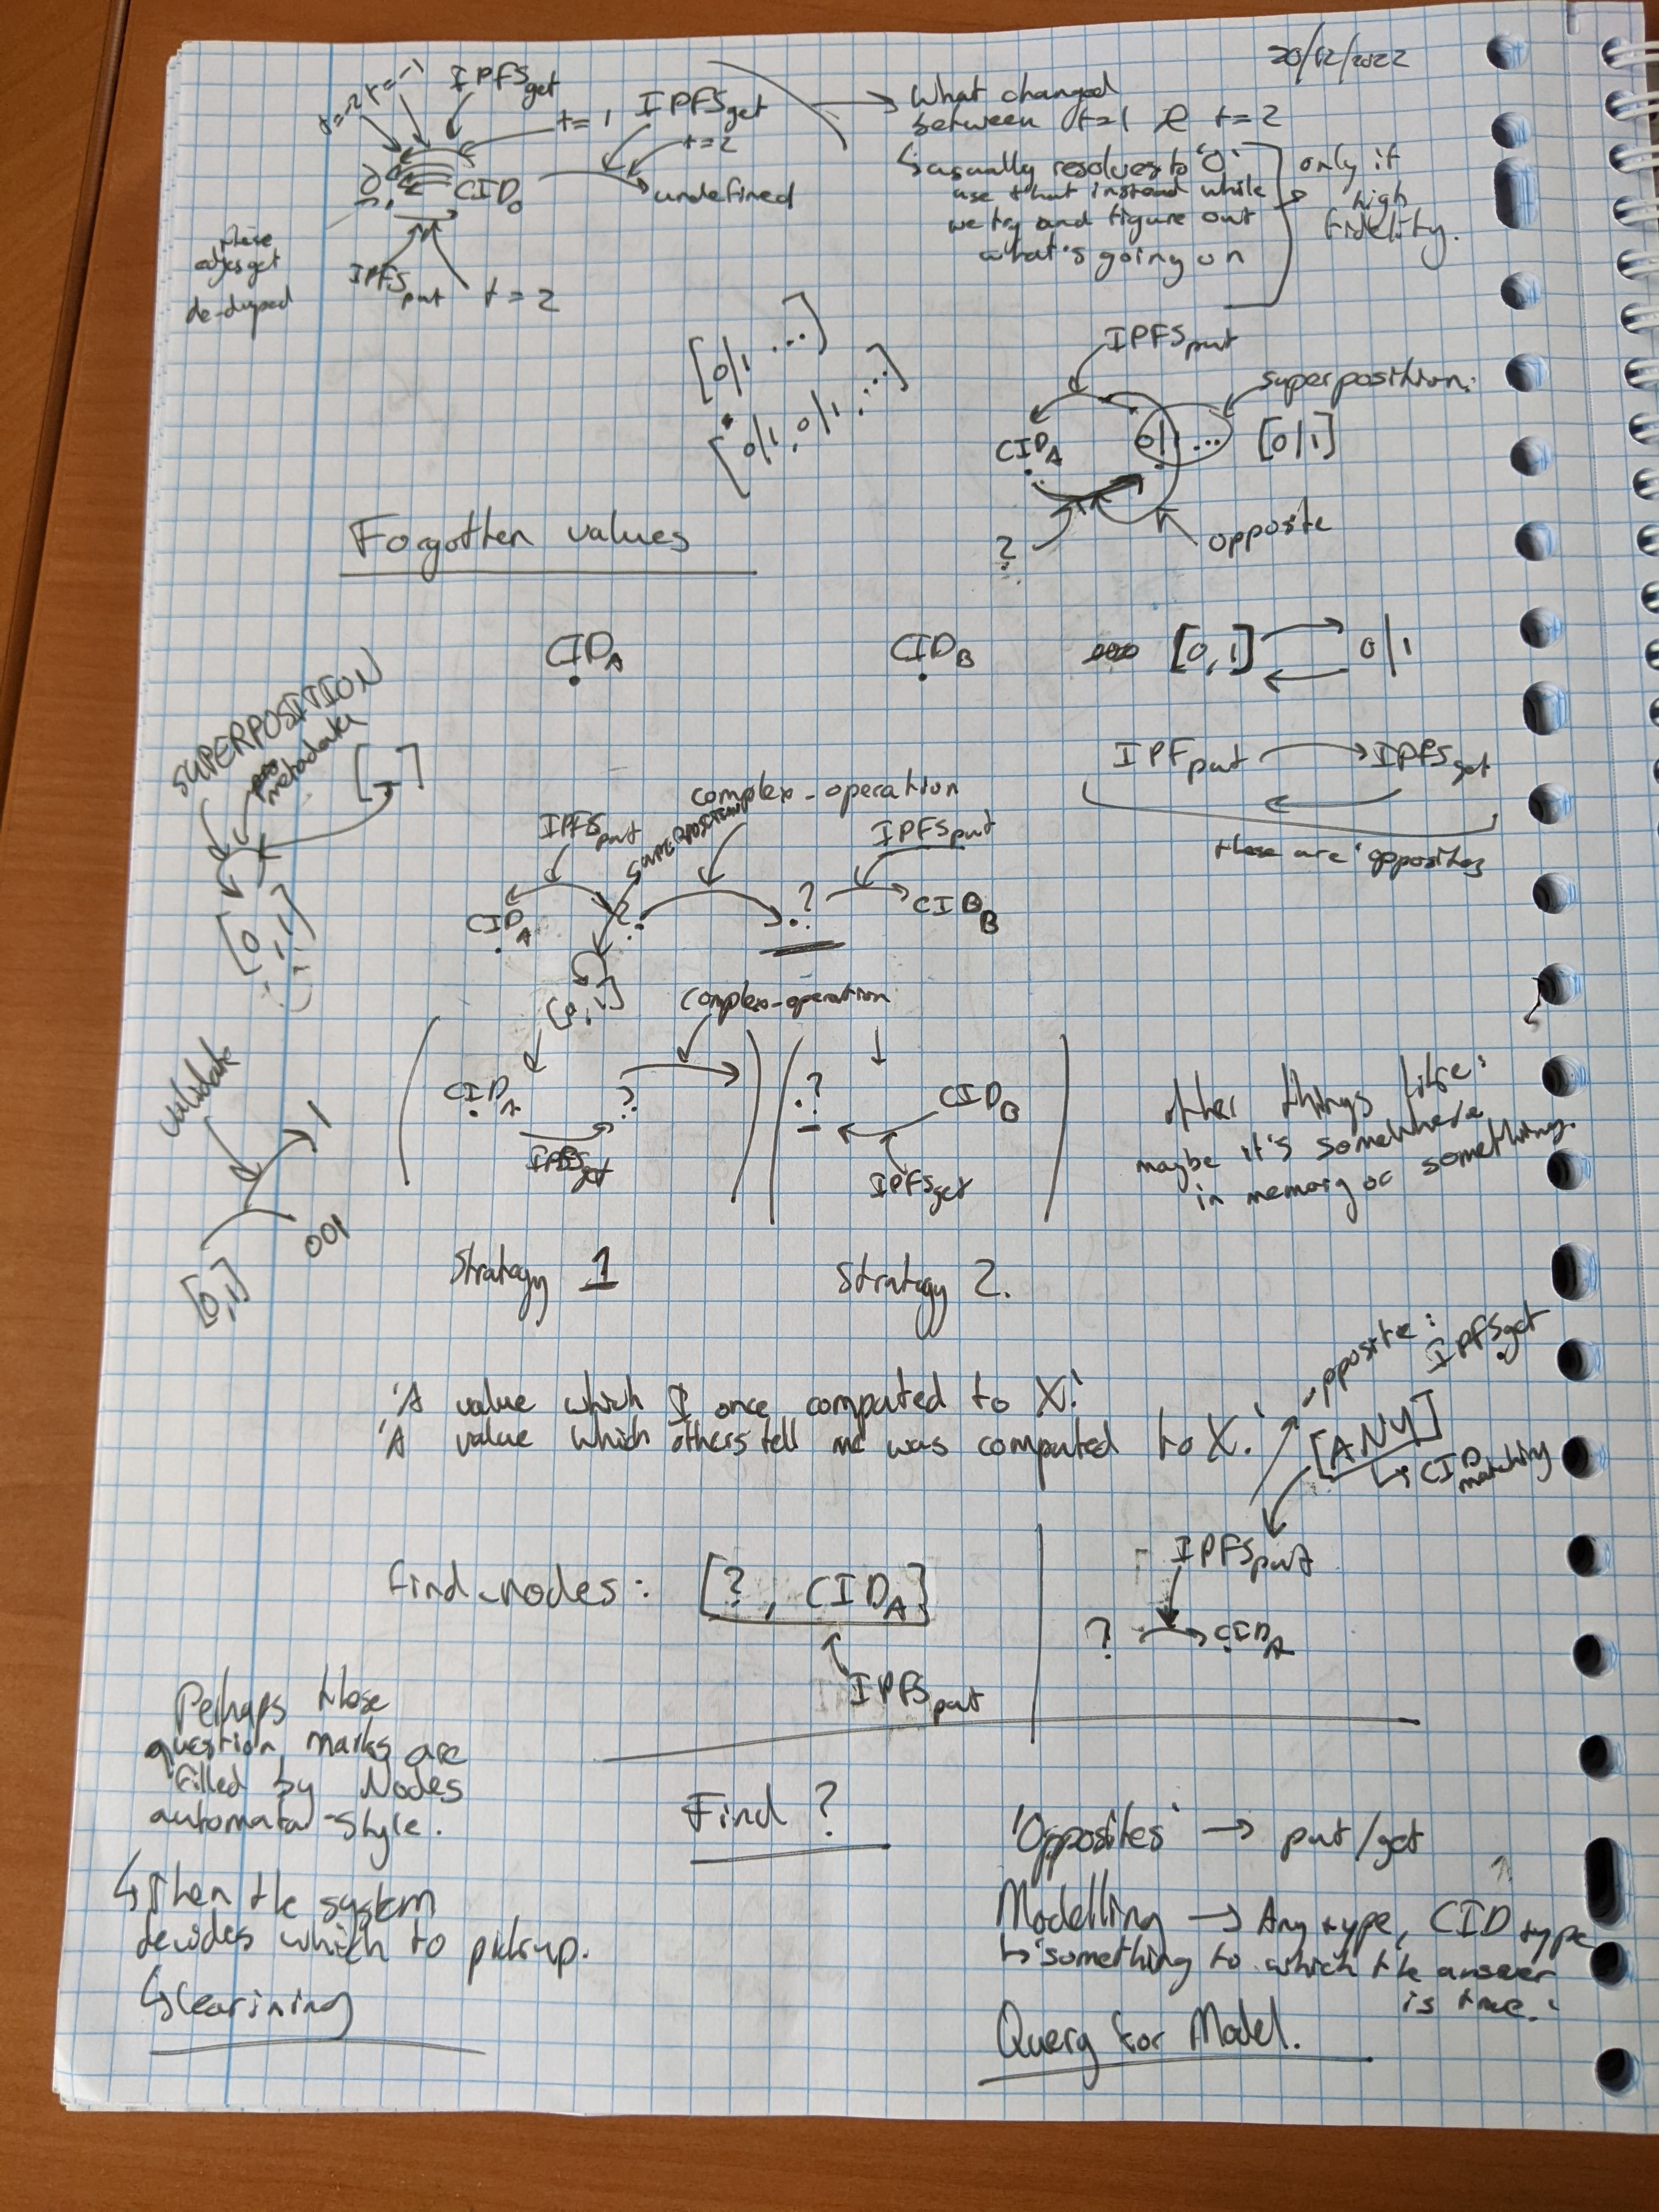 20/12/2022
t=-2
t=-1
IPFSget
t=1
IPFSget
t=2
0
CID0
undefined
these
edges get
de-duped
IPFSput
t=2
What changed
between t=1 & t=2
↳ usually resolves to '0'
use that instead while
we try and figure out
what's going on
only if
high
fidelity.
[0|1 ...]
[0|1, 0|1, ...]
IPFSput
superposition.
CIDA
0|1 ...
[0|1]
?
opposite
Forgotten values
CIDA
CIDB
[0,1]
0|1
SUPERPOSITION
metadata
[_]
[0,1]
IPFput
IPFSget
these are 'opposites'
complex-operation
IPFSput
SUPERPOSITION
IPFSput
CIDA
?
?
CIDB
[0,1]
complex-operation
CIDA
?
IPFSget
?
CIDB
IPFSget
validate
1
001
[0,1]
other things like:
maybe it's somewhere
in memory or something.
Strategy 1
Strategy 2.
'A value which I once computed to X.'
'A value which others tell me was computed to X.'
opposite:
IPFSget
[ANY]
↳ CID matching
find_nodes: [?, CIDA]
IPFSput
IPFSput
? CIDA
Perhaps those
question marks are
filled by Nodes
automata-style.
↳ Then the system
decides which to pickup.
↳ Learining
Find ?
'Opposites' → put/get
Modelling → Any type, CID type
↳ 'something to which the answer
is true.'
Query for Model.